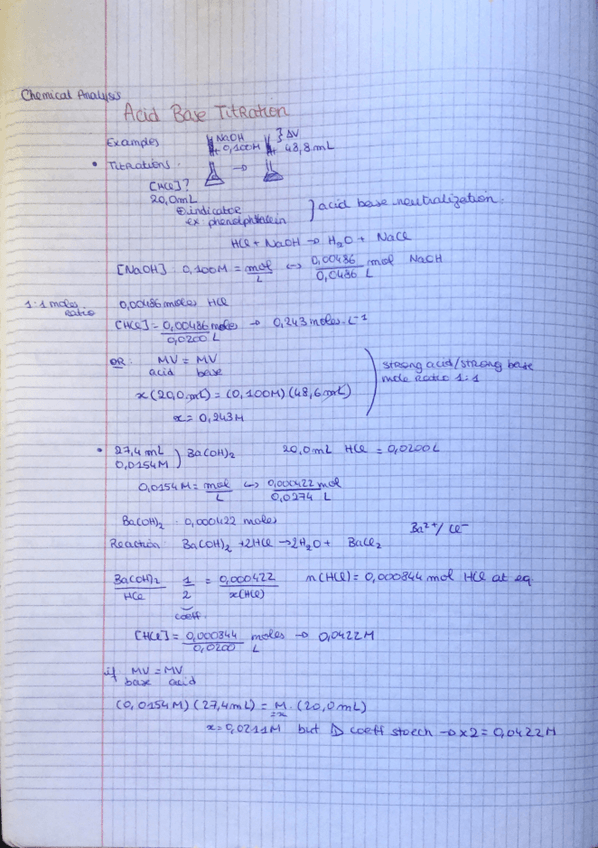 Chemical Analysis
Acid Base Titration
Examples NaOH } ΔV
0,100M → 48,8mL
• Titrations:
[HCl]?
20,0mL
⊕indicator
ex phenolphtalein } acid base neutralization.
HCl + NaOH → H₂O + NaCl
[NaOH]: 0,100M = mol/L ↔ 0,00486 mol/0,0486 L NaOH
1:1 moles ratio 0,00486 moles HCl
[HCl] = 0,00486 moles/0,0200 L → 0,243 moles.L⁻¹
OR: MV = MV
acid base
x(20,0mL) = (0,100M)(48,6mL)
x = 0,243M
strong acid/strong base
mole ratio 1:1
• 27,4 mL
0,0154M ) Ba(OH)₂ 20,0mL HCl = 0,0200L
0,0154M = mol/L ↔ 0,000422 mol/0,0274 L
Ba(OH)₂: 0,000422 moles Ba²⁺/Cl⁻
Reaction: Ba(OH)₂ + 2HCl → 2H₂O + BaCl₂
Ba(OH)₂/HCl 1/2 = 0,000422/x(HCl) n(HCl) = 0,000844 mol HCl at eq.
coeff.
[HCl] = 0,000844/0,0200 moles/L → 0,0422M
if MV = MV
base acid
(0,0154M)(27,4mL) = M.(20,0mL)
=x
x = 0,0211M but coeff stoech → x2 = 0,0422M